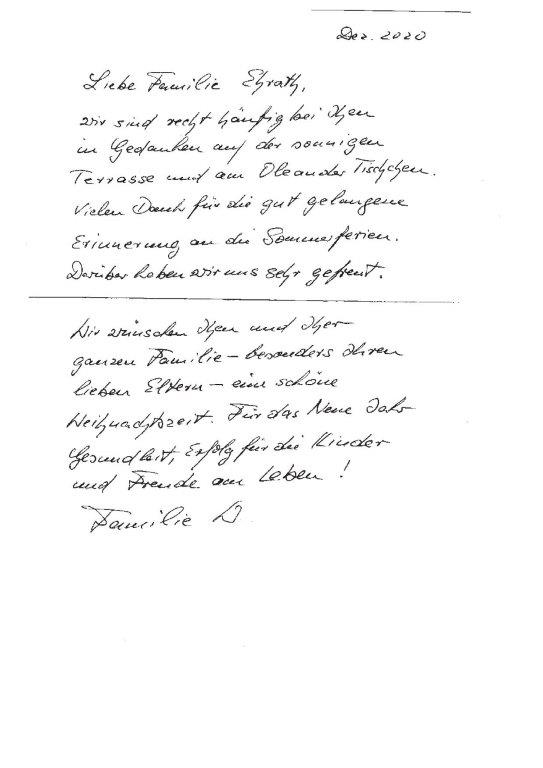 Dez. 2020
Liebe Familie Ehrath,
wir sind recht häufig bei Ihnen
in Gedanken auf der sonnigen
Terrasse und am Oleander Tischchen.
Vielen Dank für die gut gelungene
Erinnerung an die Sommerferien.
Darüber haben wir uns sehr gefreut.
Wir wünschen Ihnen und Ihrer
ganzen Familie – besonders Ihren
lieben Eltern – eine schöne
Weihnachtszeit. Für das Neue Jahr
Gesundheit, Erfolg für die Kinder
und Freude am Leben!
Familie D